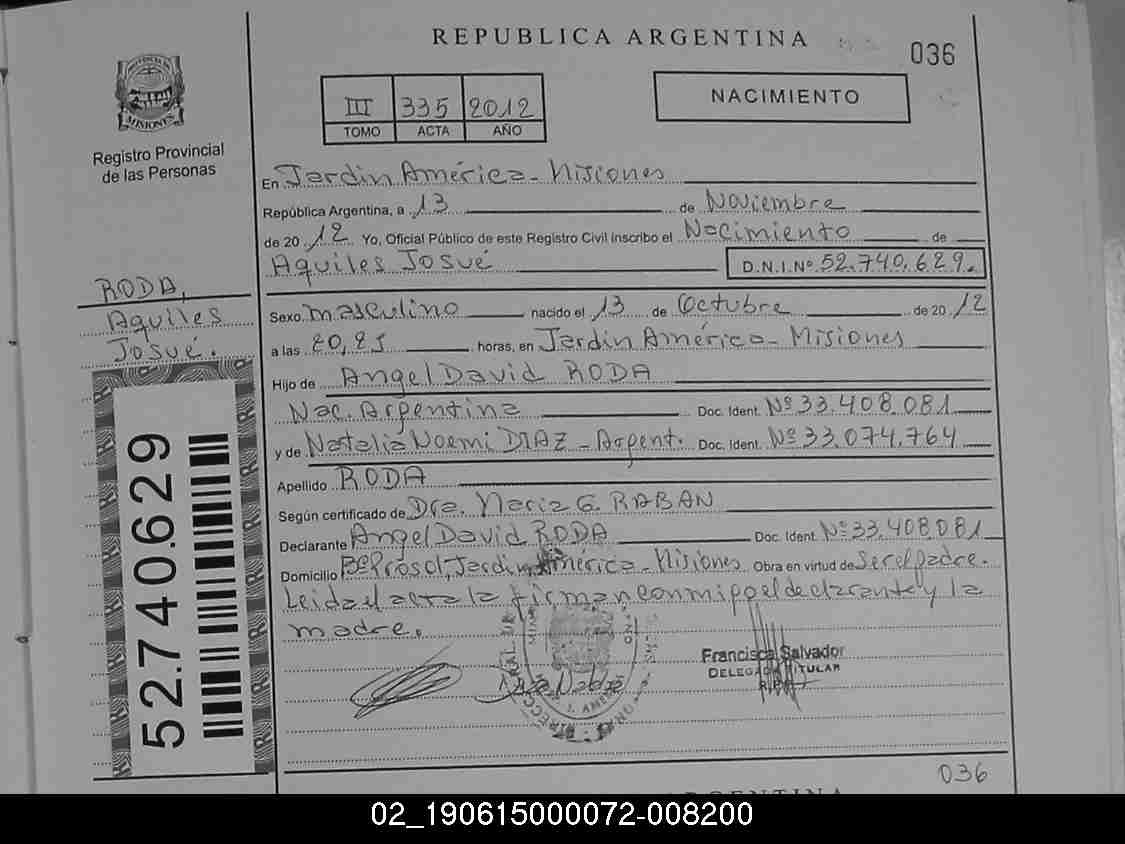 REPUBLICA ARGENTINA
036
PROVINCIA DE
MISIONES
Registro Provincial
de las Personas
III 335 2012
TOMO ACTA AÑO
NACIMIENTO
En Jardín América - Misiones
República Argentina, a 13 de Noviembre
de 20 12 Yo, Oficial Público de este Registro Civil inscribo el Nacimiento de
Aquiles Josué D.N.I.Nº 52.740.629.
RODA,
Aquiles
Josué.
Sexo masculino nacido el 13 de Octubre de 20 12
a las 20,25 horas, en Jardín América - Misiones
Hijo de Angel David RODA
Nac. Argentina Doc. Ident. Nº 33.408.081
y de Natalia Noemi DIAZ - Argent. Doc. Ident. Nº 33.074.764
Apellido RODA
Según certificado de Dra. Maria G. RABAN
Declarante Angel David RODA Doc. Ident. Nº 33.408.081
Domicilio Bº Prosol, Jardín América - Misiones Obra en virtud de Ser el padre.
Leida el acta la firman conmigo el declarante y la
madre.
52.740.629
Francisca Salvador
DELEGADA TITULAR
R.P.P.
036
ARGENTINA
02_190615000072-008200